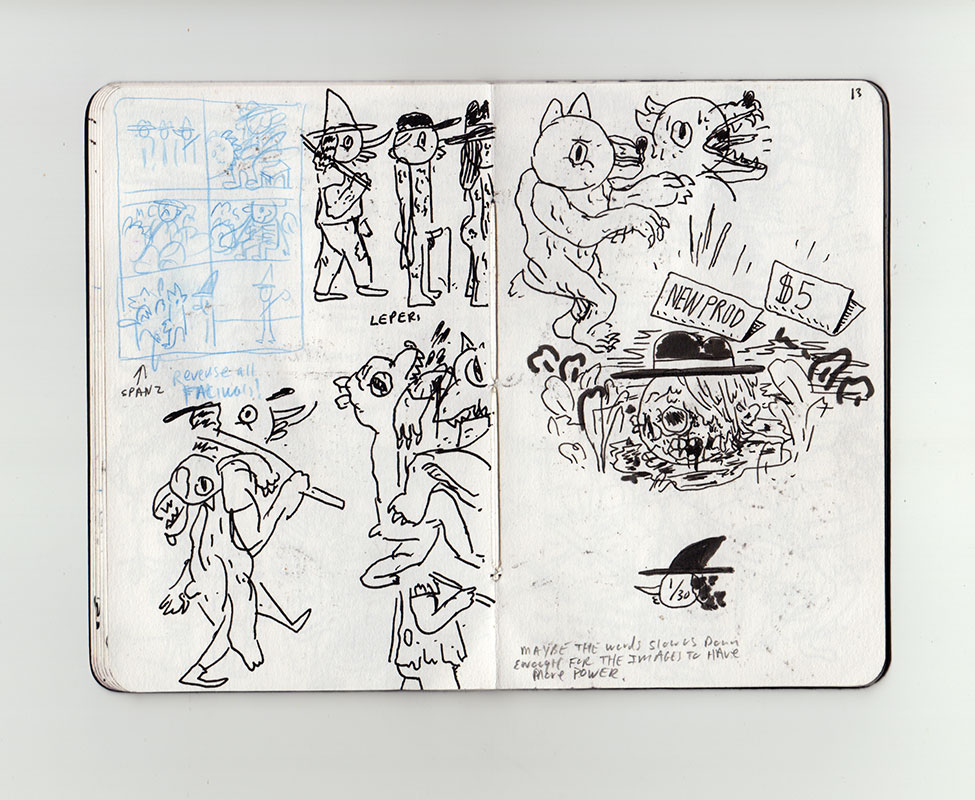 LEPERS
SPANZ
Reverse all
FACINGS!
13
NEW PROD
$5
1/30
MAYBE THE words slows Down
Enough FOR THE IMAGES TO HAVE
More POWER.